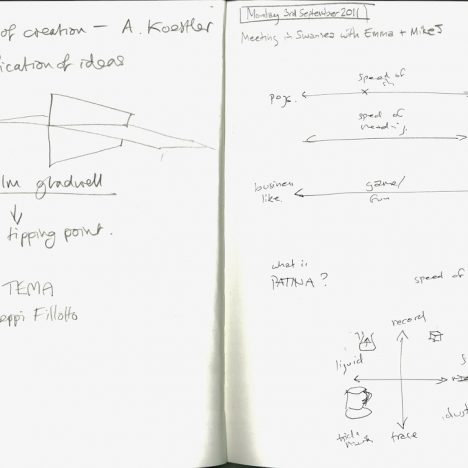 of creation — A. Koestler
ication of ideas
lm gladwell
tipping point.
TEMA
eppi Fillotto
Monday 3rd September 2011
Meeting in Swansea with Emma + Mike J
speed of
page.
speed of
reading.
business
like.
game/
fun
what is
PATINA?
speed of
record
liquid
trace